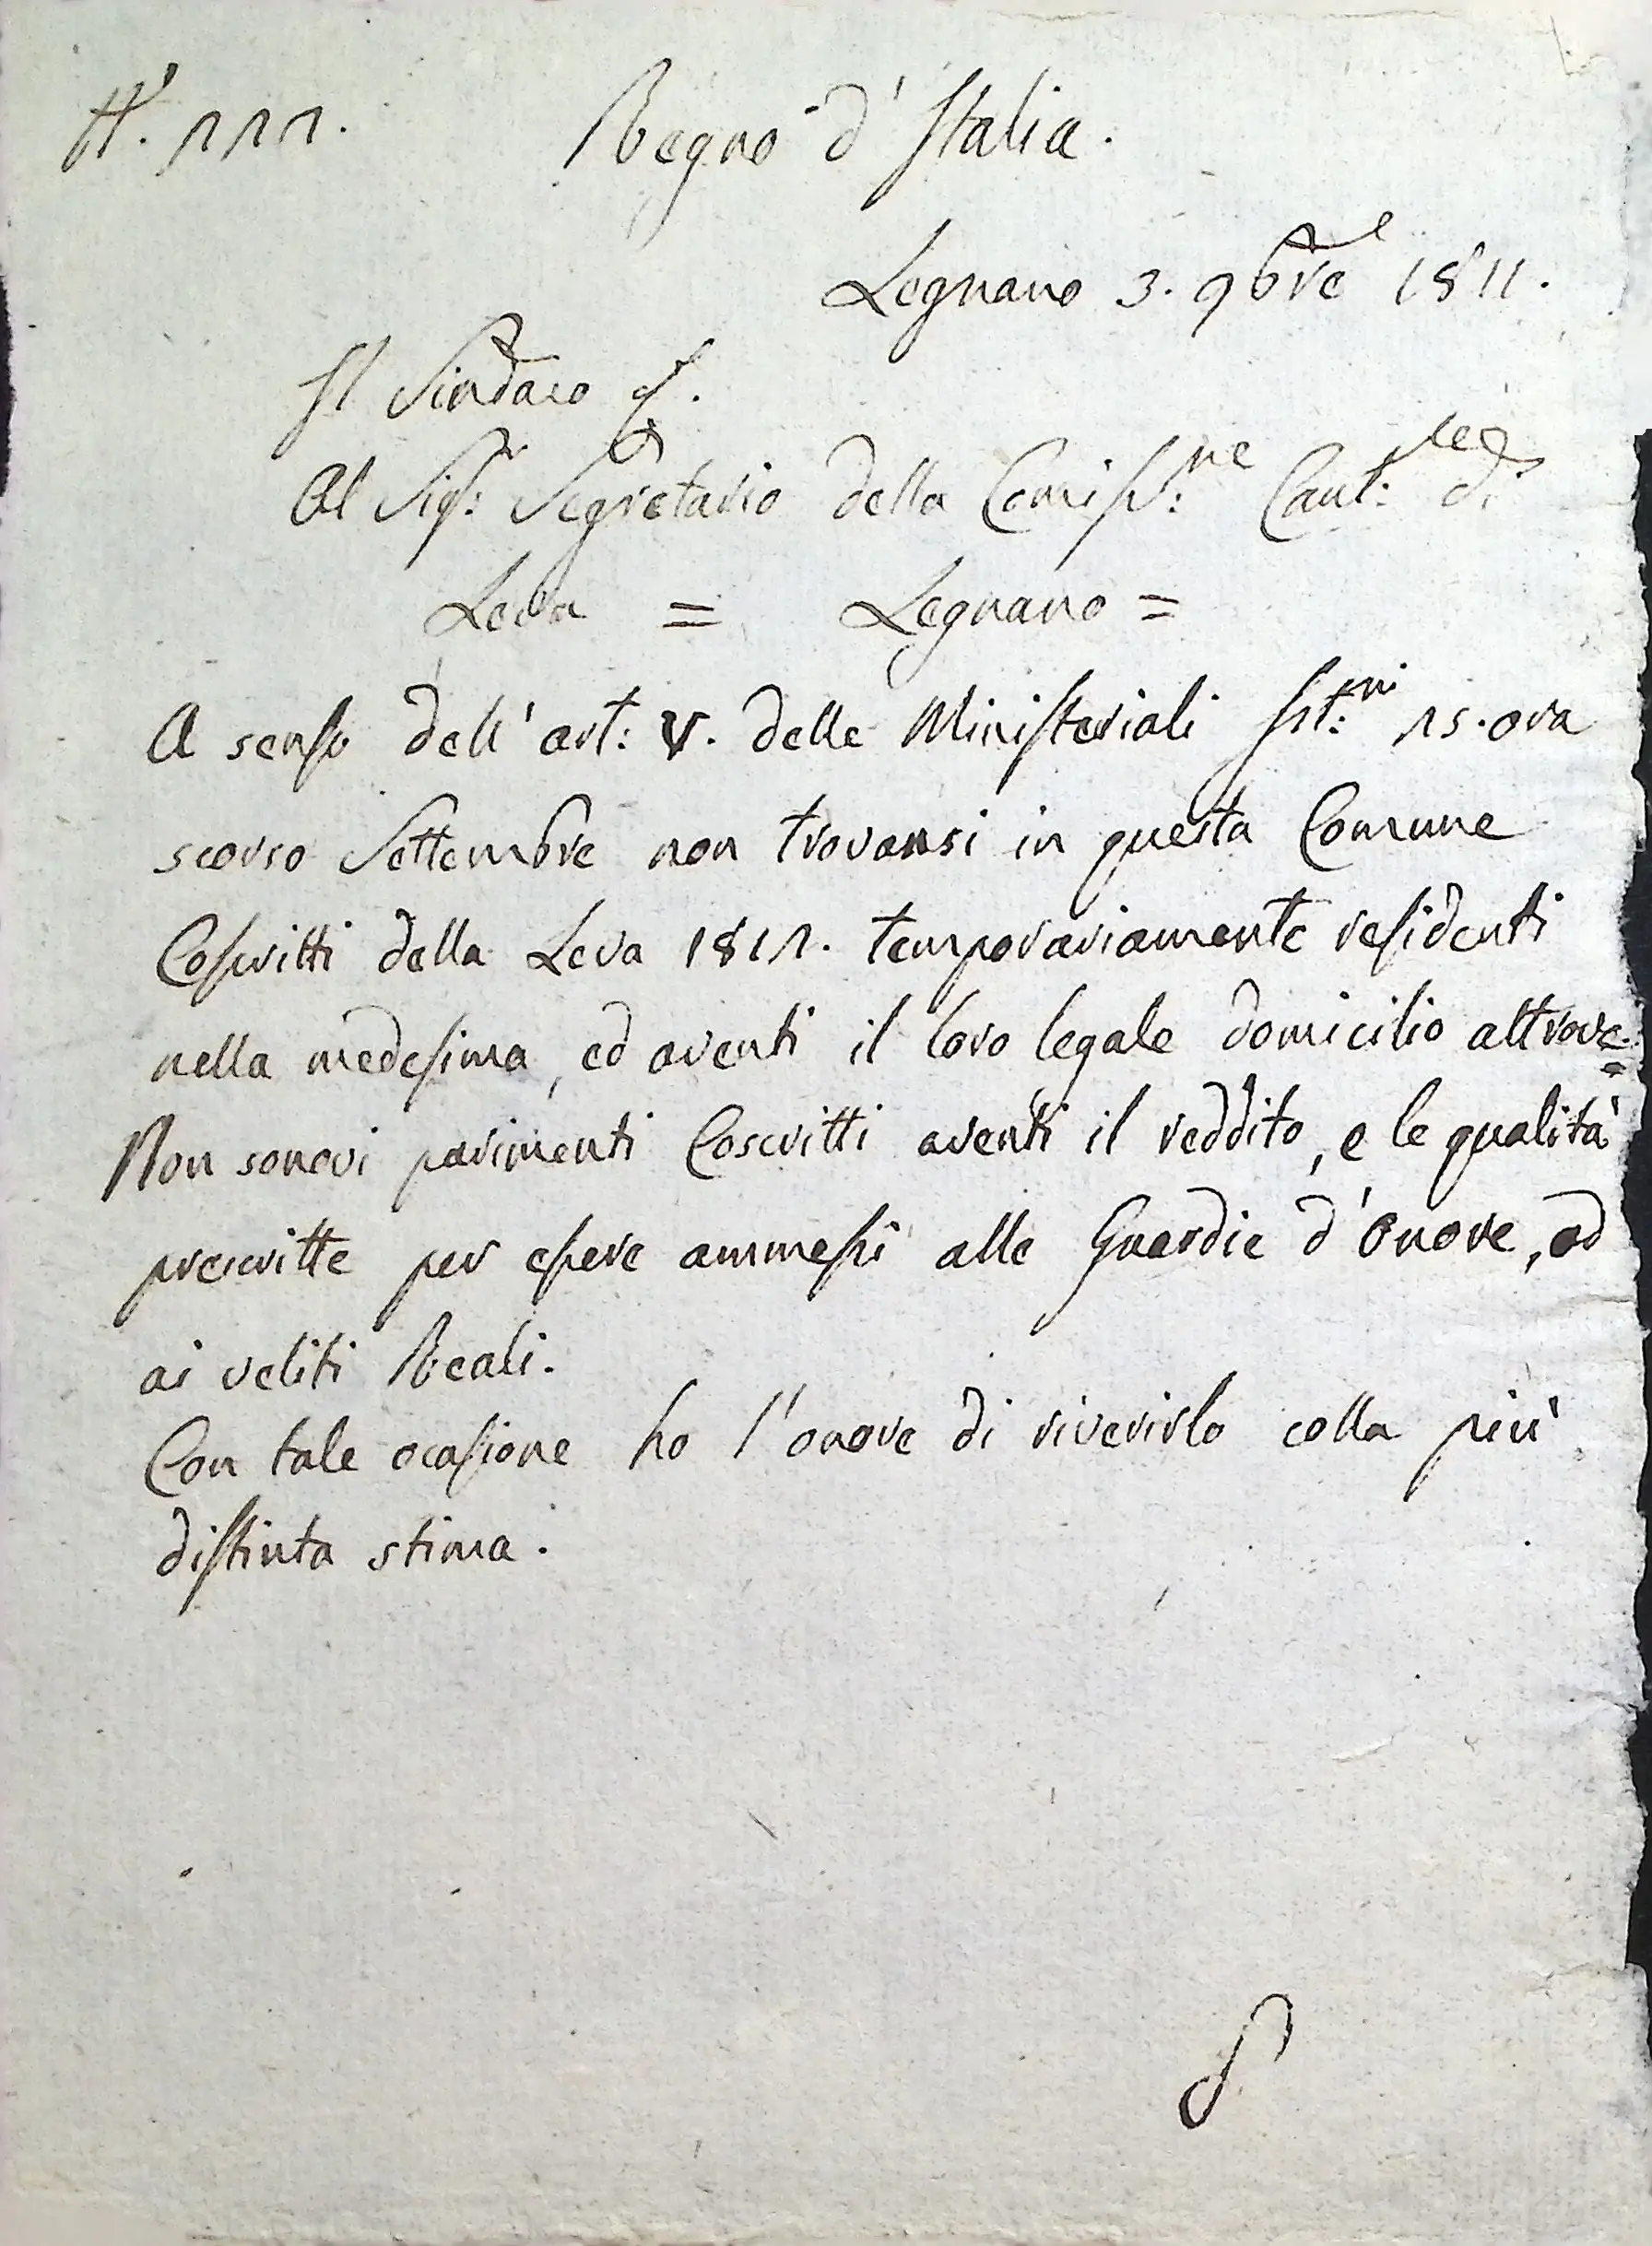 N.° 111. Regno d'Italia.
Legnano 3. 9bre 1811.
Il Sindaco
Al Sig.r Segretario della Comiss:ne Cant:le di
Leva = Legnano =
A senso dell'art: V. delle Ministeriali Ist:ni 15. ora
scorso Settembre non trovansi in questa Comune
Coscritti della Leva 1811. temporariamente residenti
nella medesima, ed aventi il loro legale domicilio altrove.
Non sonovi parimenti Coscritti aventi il reddito, e le qualità
prescritte per essere ammessi alle Guardie d'Onore, od
ai veliti Reali.
Con tale ocasione ho l'onore di riverirlo colla più
distinta stima.